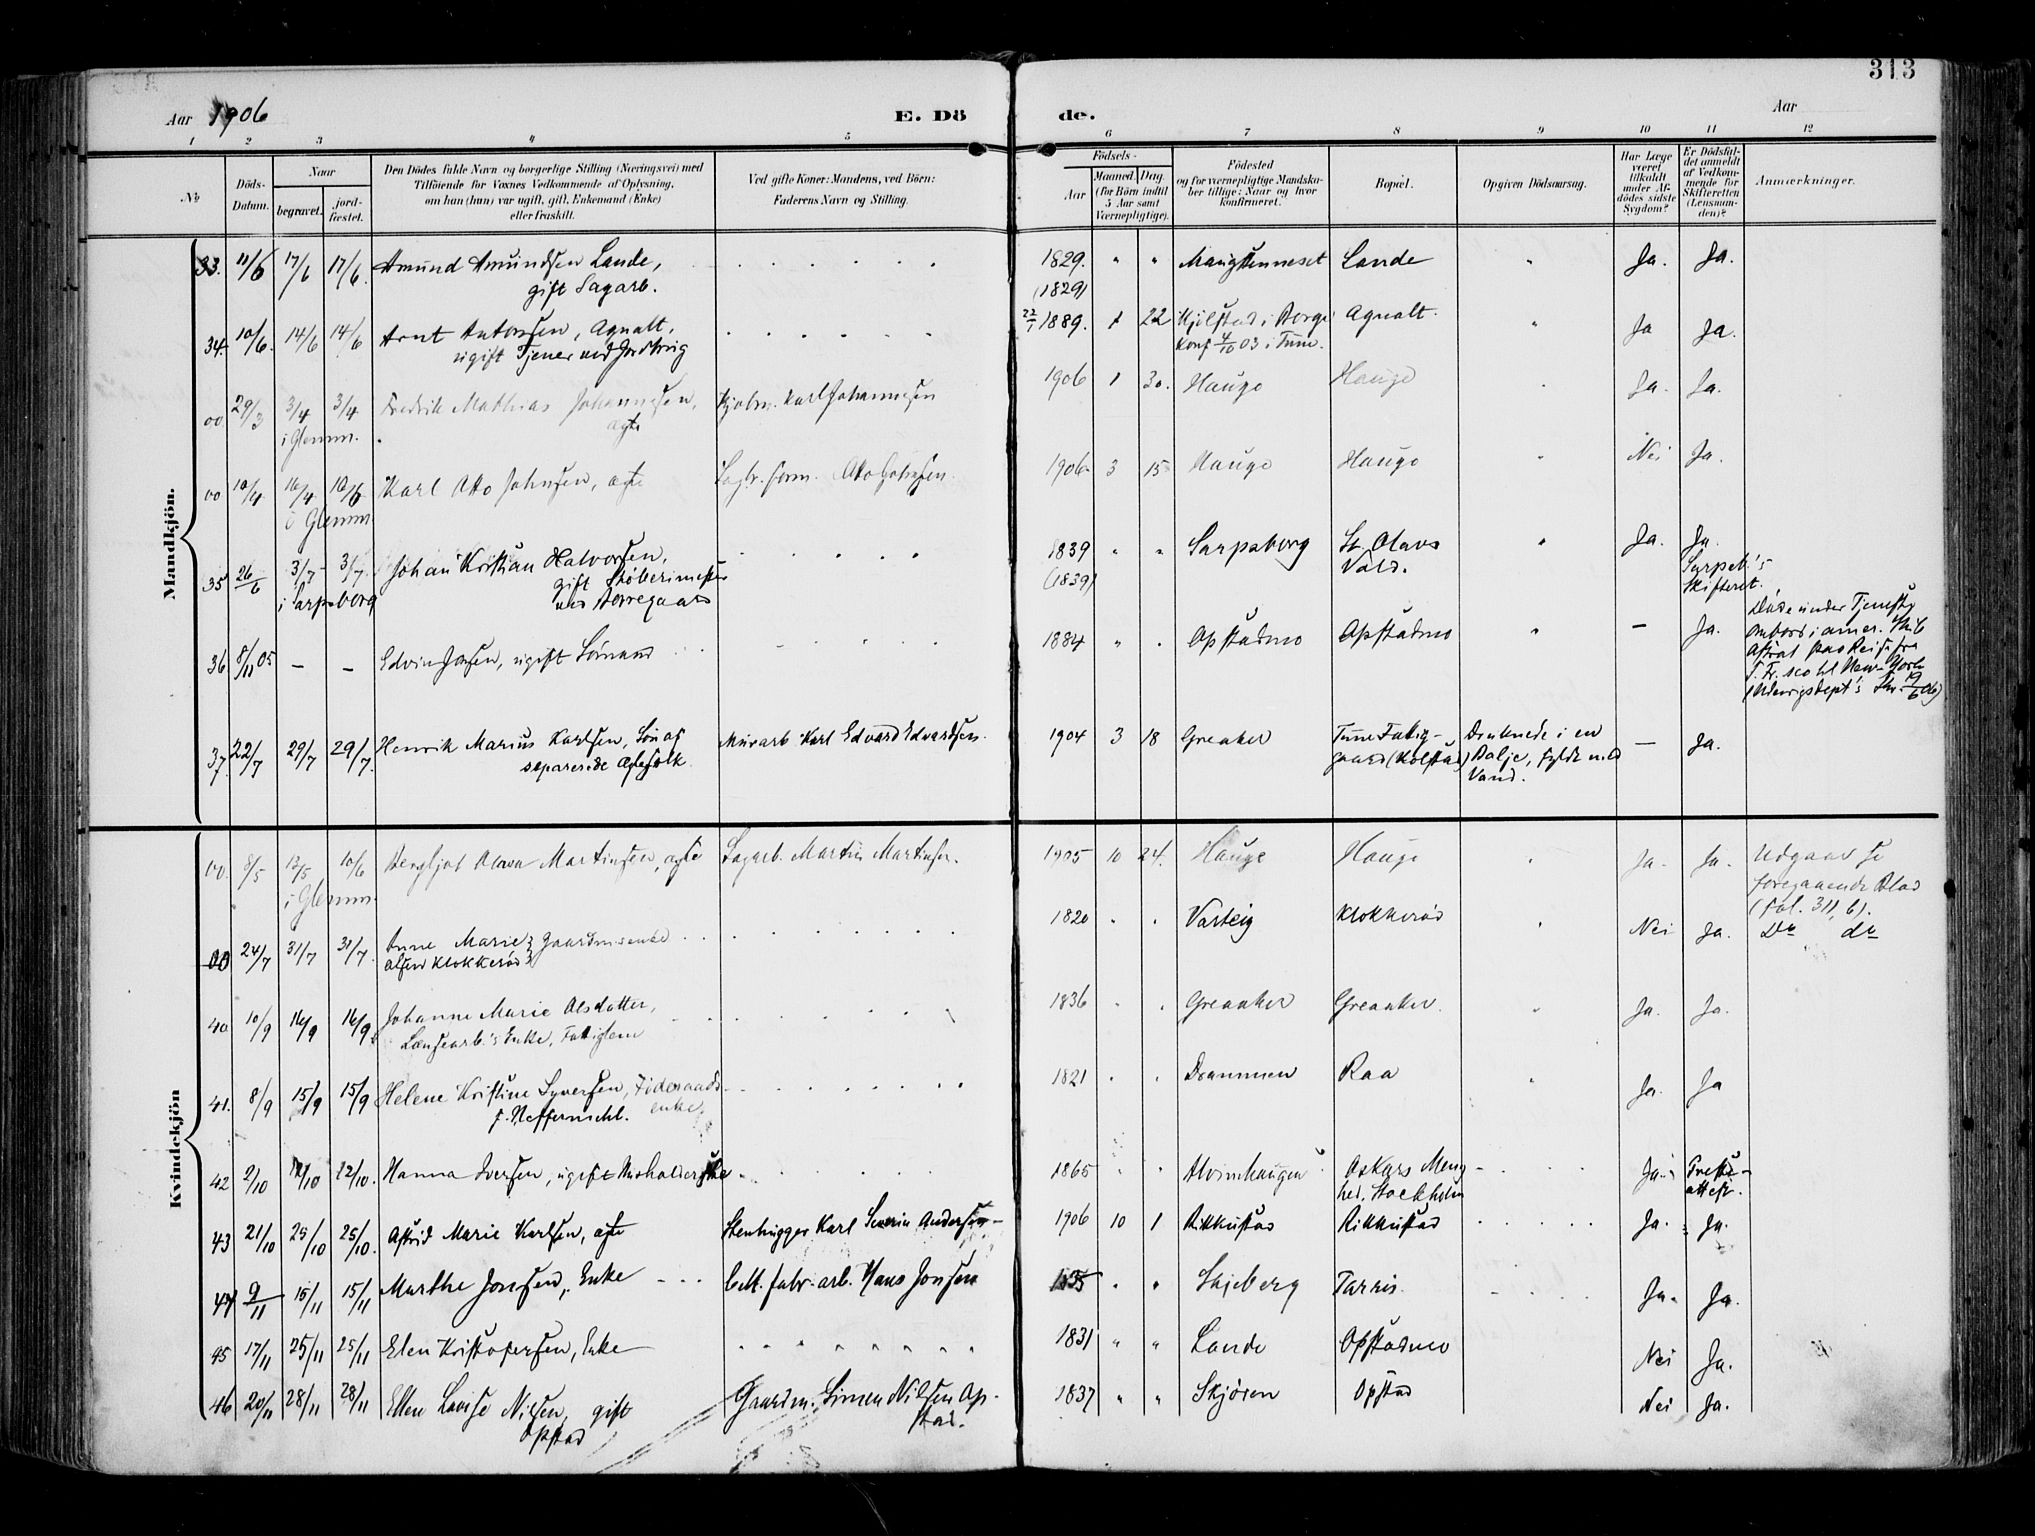 313
Aar 1906
E. Dö
de.
Aar
1 2 3 4 5 6 7 8 9 10 11 12
No
Döds-
Datum.
Naar
begravet.
jord-
fæstet.
Den Dödes fulde Navn og borgerlige Stilling (Næringsvei) med
Tilföiende for Voxnes Vedkommende af Oplysning,
om han (hun) var ugift, gift, Enkemand (Enke)
eller fraskilt.
Ved gifte Koner: Mandens, ved Börn:
Faderens Navn og Stilling.
Födsels-
Aar
Maaned. Dag.
(for Börn indtil
5 Aar samt
Værnepligtige).
Födested
og for værnepligtige Mandska-
ber tillige: Naar og hvor
konfirmeret.
Bopæl.
Opgiven Dödsaarsag.
Har Læge
været
tilkaldt
under Af-
dödes sidste
Sygdom?
Er Dödsfal-
det anmeldt
af Vedkom-
mende for
Skifteretten
(Lensman-
den)?
Anmærkninger.
Mandkjön.
33. 11/6 17/6 17/6. Amund Amundsen Lande, 1829. " " Lande " Ja. Ja.
gift Sagarb. (1829)
34. 10/6. 14/6 14/6 Arnt Antonsen, Agnalt, 22/1 1889. 1 22 Kjølstad i Borge Agnalt. " Ja Ja.
ugift Tjener ved Jordbrug Konf 4/10 03 i Tune.
00 29/3 3/4 3/4 Fredrik Mathias Johannesen, Karl Johannesen 1906 1 30. Hauge Hauge Ja. Ja.
i Glemm. ægte
00 10/4 16/4 10/6 Karl Otto Johnsen, ægte Sagb. form. Otto Johnsen. 1906 3 15 Hauge Hauge " Nei Ja.
i Glemm.
35 26/6 3/7 3/7. Johan Kristian Halvorsen, 1839 " " Sarpsborg St. Olavs " Ja. Ja.
i Sarpsborg gift Støberimester (1839) Vold. Sarpsb.'s
ved Borregaard Skifteret.
36 8/11 05 — — Edvin Jensen, ugift Sømand 1884 " " Opstadmo Opstadmo " — Ja. Døde under Tjeneste
ombord i amer. Skib
Astral paa Reise fra
S. Fr.sco til New-York
(Udenrigsdept's Skr. 19/6 06)
37. 22/7 29/7 29/7. Henrik Marius Karlsen, Søn af Murarb Karl Edvard Edvardsen. 1904 3 18 Greaker Tune Fattig- Druknede i en — Ja.
separerede Ægtefolk gaard (Kolstad) Balje, fyldt med
Vand.
Kvindekjön
00. 8/5 13/5 10/6 Bergljot Olava Martinsen, ægte Sagarb. Martin Martinsen. 1905 10 24. Hauge Hauge " Ja. Ja. Udgaar se
i Glemm. foregaaende Blad
(Fol. 311, 6).
00 24/7 31/7 31/7. Anne Marie Gaardmsenke 1820 " " Varteig Klokkerød " Nei Ja. Do do
Olsen Klokkerød
40. 10/9 16/9 16/9 Johanne Marie Olsdatter, 1836 " " Greaaker Greaaker. " Ja. Ja.
Lænsearb.'s Enke, Fattiglem
41. 8/9 15/9 15/9 Helene Kristine Syversen, 1821 " " Drammen Raa " Ja. Ja
enke.
42 2/10 12/10 12/10. Hanna Iversen, ugift Husholderske 1865 " " Alvimhaugen Oskars Meng- Ja. Preste-
hed. Stockholm attest.
43 21/10 25/10 25/10. Astrid Marie Karlsen, ægte Stenhugger Karl Severin Andersen 1906 10 1 Rikkustad Rikkustad Ja. Ja.
44 9/11 15/11 15/11 Marthe Jonsen, Enke Cell. fabr. arb. Hans Jonsen " " Skjeberg Tarris. Ja. Ja.
45 17/11 25/11 25/11 Elen Kristofersen, Enke 1831 " " Lande Opstadmo Nei Ja.
46 20/11 28/11 28/11 Ellen Lovise Nilsen, gift Gaardm. Simen Nilsen Op- 1837 " " Skjøren Opstad Nei Ja.
Opstad stad.